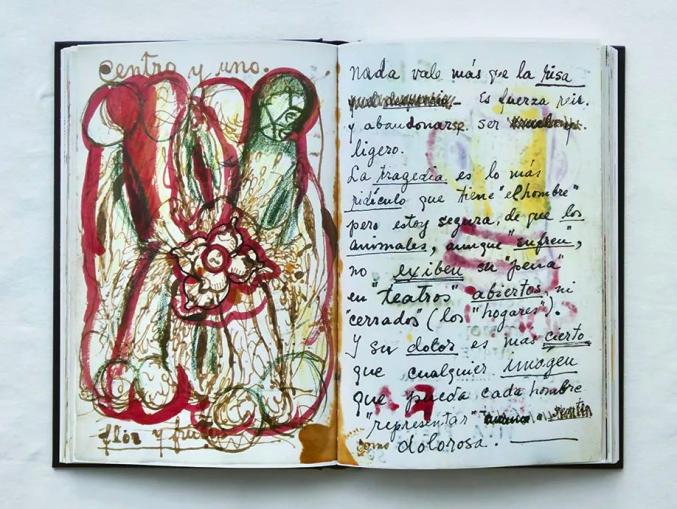 centro y uno.
flor y fruto
nada vale más que la risa
Es fuerza reir.
y abandonarse. ser
ligero.
La tragedia es lo más
ridículo que tiene "el hombre"
pero estoy segura, de que los
animales, aunque "sufren",
no exiben su "pena"
en "teatros" abiertos, ni
"cerrados" (los "hogares").
Y su dolor es mas cierto
que cualquier imágen
que pueda cada hombre
"representar"
como dolorosa.